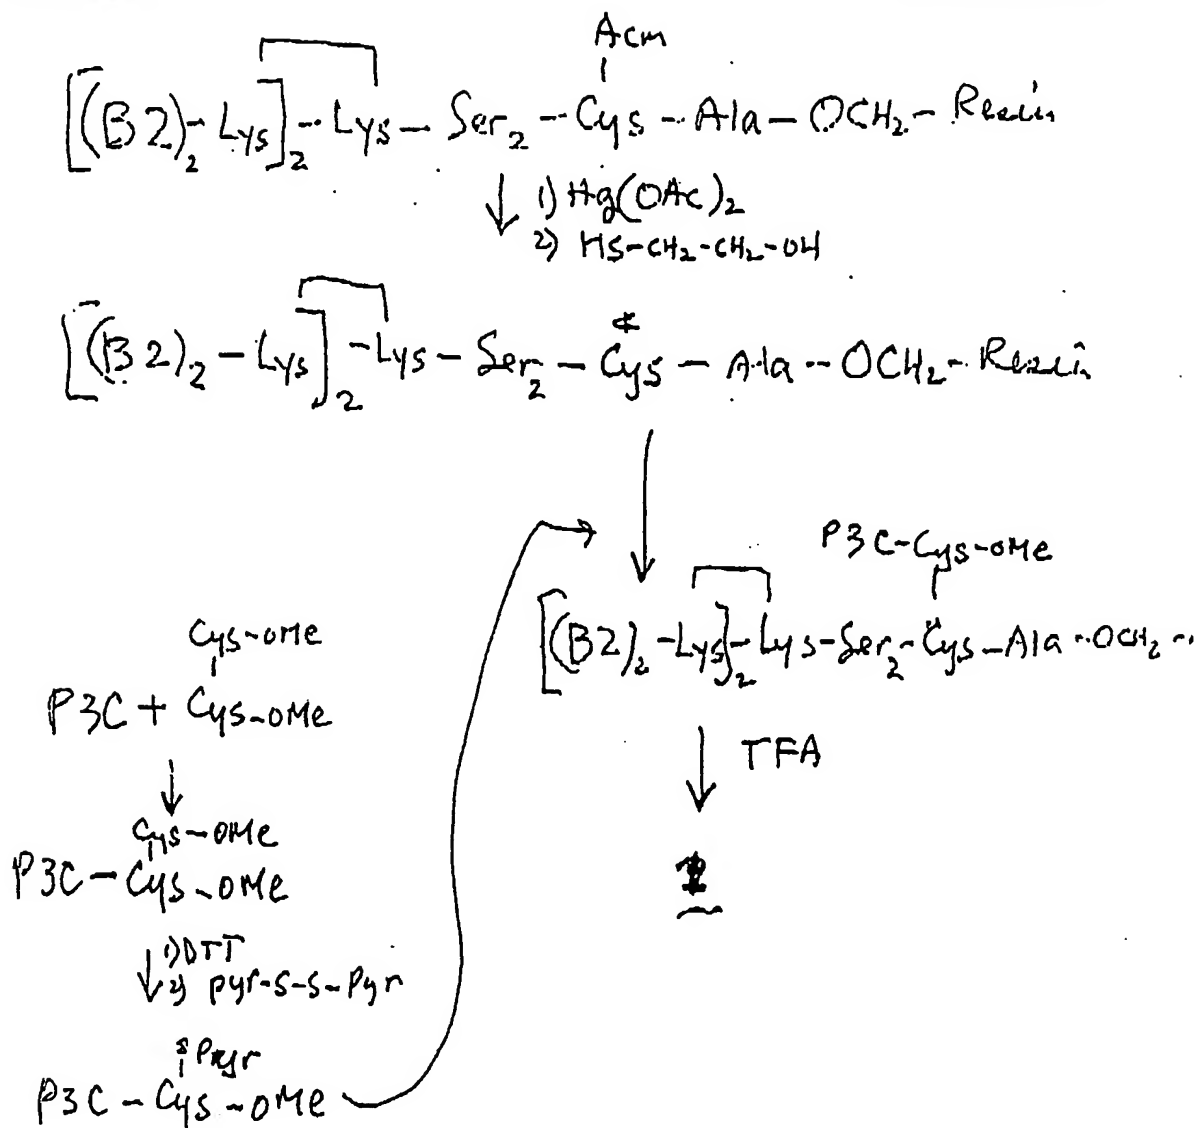 Acm
[(B2)2-Lys]2-Lys-Ser2-Cys-Ala-OCH2-Resin
1) Hg(OAc)2
2) HS-CH2-CH2-OH
[(B2)2-Lys]2-Lys-Ser2-Cys-Ala-OCH2-Resin
P3C-Cys-OMe
[(B2)2-Lys]2-Lys-Ser2-Cys-Ala-OCH2-
Cys-OMe
P3C + Cys-OMe
TFA
Cys-OMe
P3C-Cys-OMe
1
1) DTT
2) pyr-S-S-Pyr
P3C-Cys-OMe